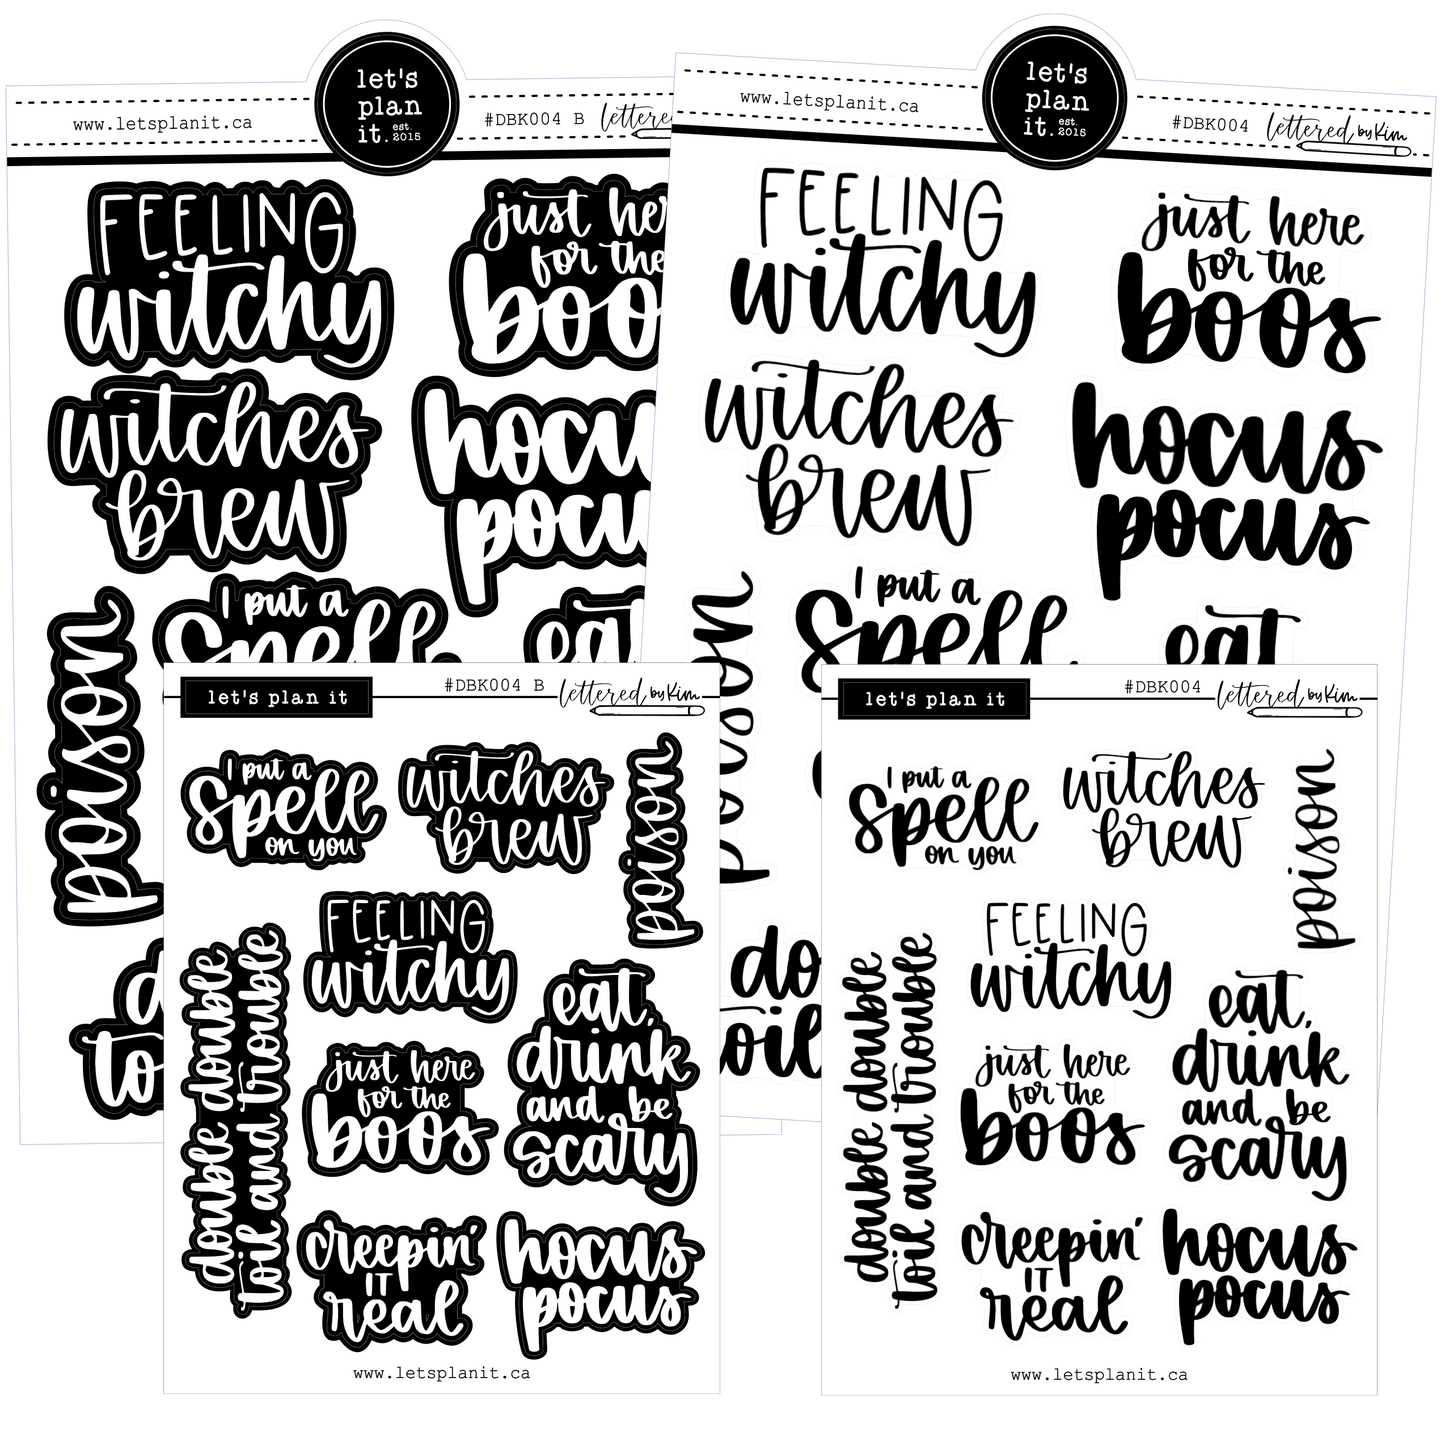 let's
plan
it.
est.
2015
www.letsplanit.ca
#DBK004 B
lettered
FEELING
witchy
just her
for the
boo
witches
brew
hocu
pocu
I put a
spell
eat
poison
to
let's
plan
it.
est.
2015
www.letsplanit.ca
#DBK004
lettered by Kim
FEELING
witchy
just here
for the
boos
witches
brew
hocus
pocus
I put a
spell
eat
poison
do
oil
let's plan it
#DBK004 B
lettered by Kim
I put a
spell
on you
witches
brew
poison
FEELING
witchy
double double
toil and trouble
just here
for the
boos
eat,
drink
and be
scary
creepin'
IT
real
hocus
pocus
www.letsplanit.ca
let's plan it
#DBK004
lettered by Kim
I put a
spell
on you
witches
brew
poison
FEELING
witchy
double double
toil and trouble
just here
for the
boos
eat,
drink
and be
scary
creepin'
IT
real
hocus
pocus
www.letsplanit.ca